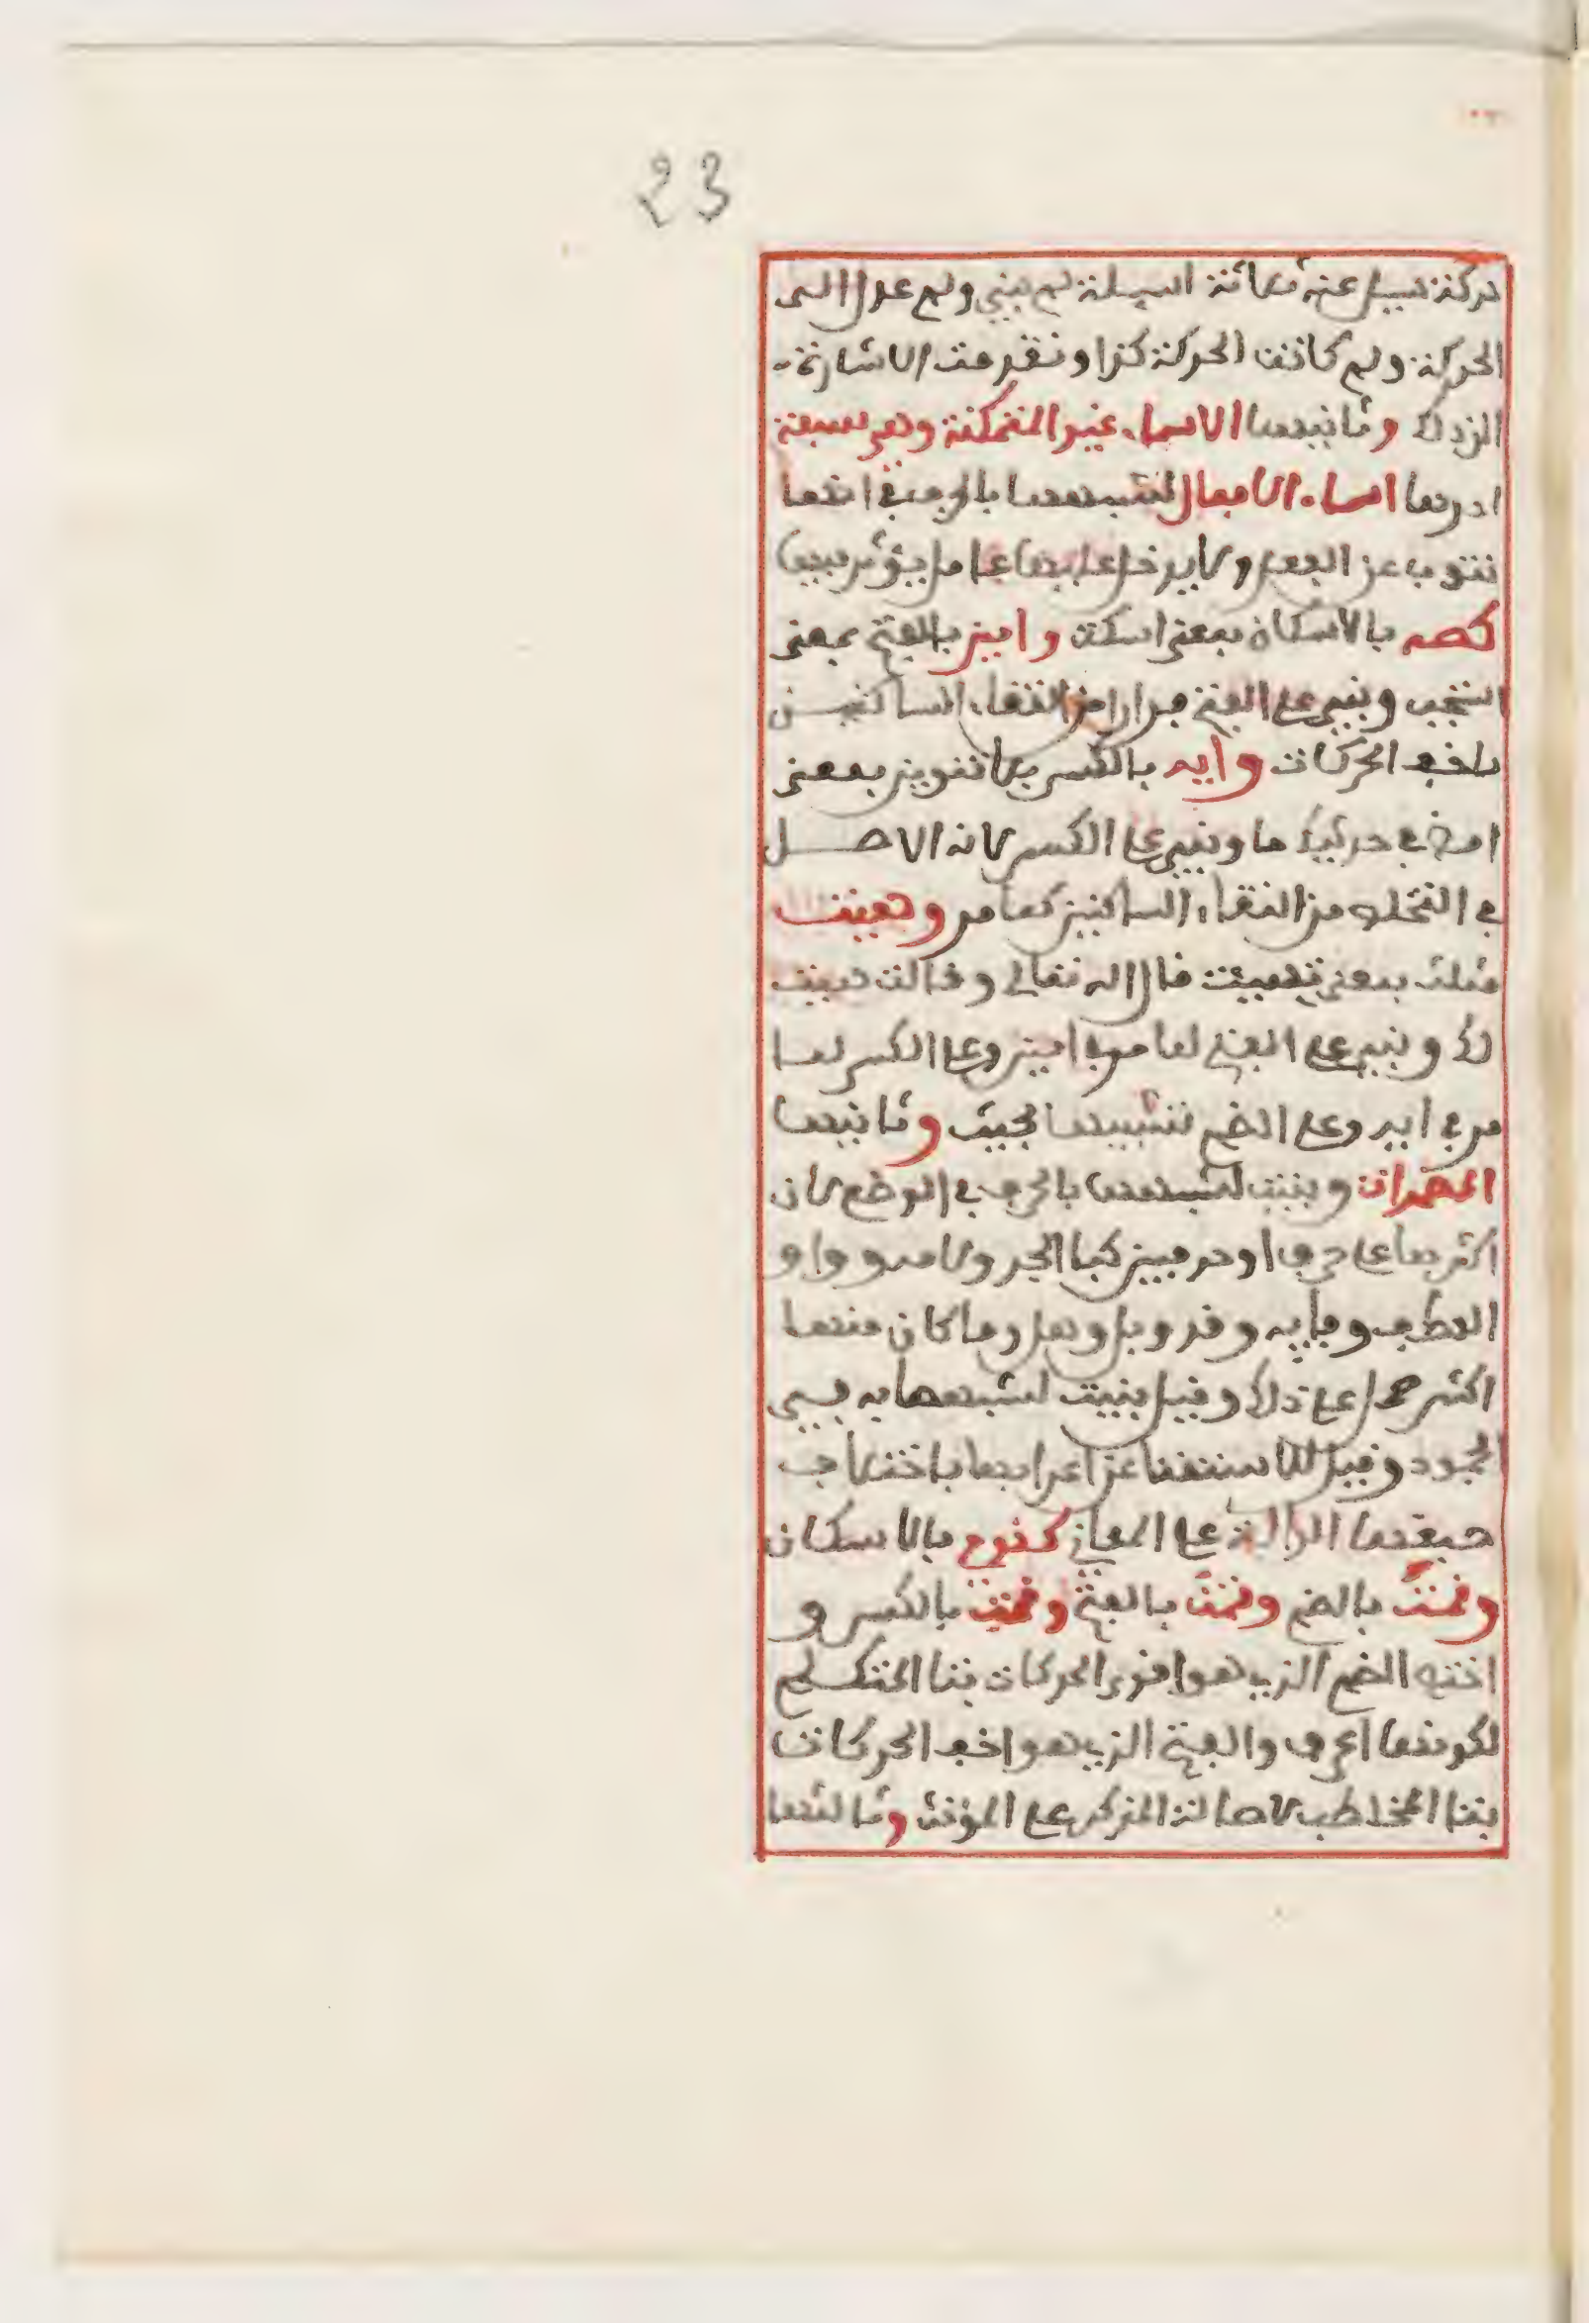 23
حركة سئل عنه ثلاثة اسئلة لم بني ولم عدل الى
الحركة ولم كانت الحركة كذا وتقدمت الاشارة
الى ذلك وثانيهما الاسماء غير المتمكنة وهي سبعة
احدها اسماء الافعال لشبهها بالحرف في انها
تنوب عن الفعل ولا يدخل عليها عامل يؤثر فيها
كصه بالاسكان بمعنى اسكت وامين بالفتح بمعنى
استجب وبني على الفتح فرارا من التقاء الساكنين
باخف الحركات وايه بالكسر بلا تنوين بمعنى
امض في حديثك ما وبني على الكسر لانه الاصل
في التخلص من التقاء الساكنين كما مر وهيت
مثلث بمعنى تهيئت قال اله تعالى وقالت هيت
لك وبني على الفتح لما مر في امين وعلى الكسر لما
مر في ايه وعلى الضم تشبيها بحيث وثانيها
المضمرات وبنيت لشبهها بالحرف في الوضع لان
اكثرها على حرف او حرفين كبا الجر ولامه وواو
العطف وفايه وقد وبل وهل وما كان منها
اكثر حمل على ذلك وقيل بنيت لشبهها به في
الجمود وقيل للاستغنا عن اعرابها باختلاف
صيغها الدالة على المعاني كقوم بالاسكان
وقمت بالضم وقمت بالفتح وقمت بالكسر و
اختص الضم الذي هو اقوى الحركات بتا المتكلم
لكونها اعرف والفتح الذي هو اخف الحركات
بتا المخاطب لاصالة المذكر على المؤنث وثالثها